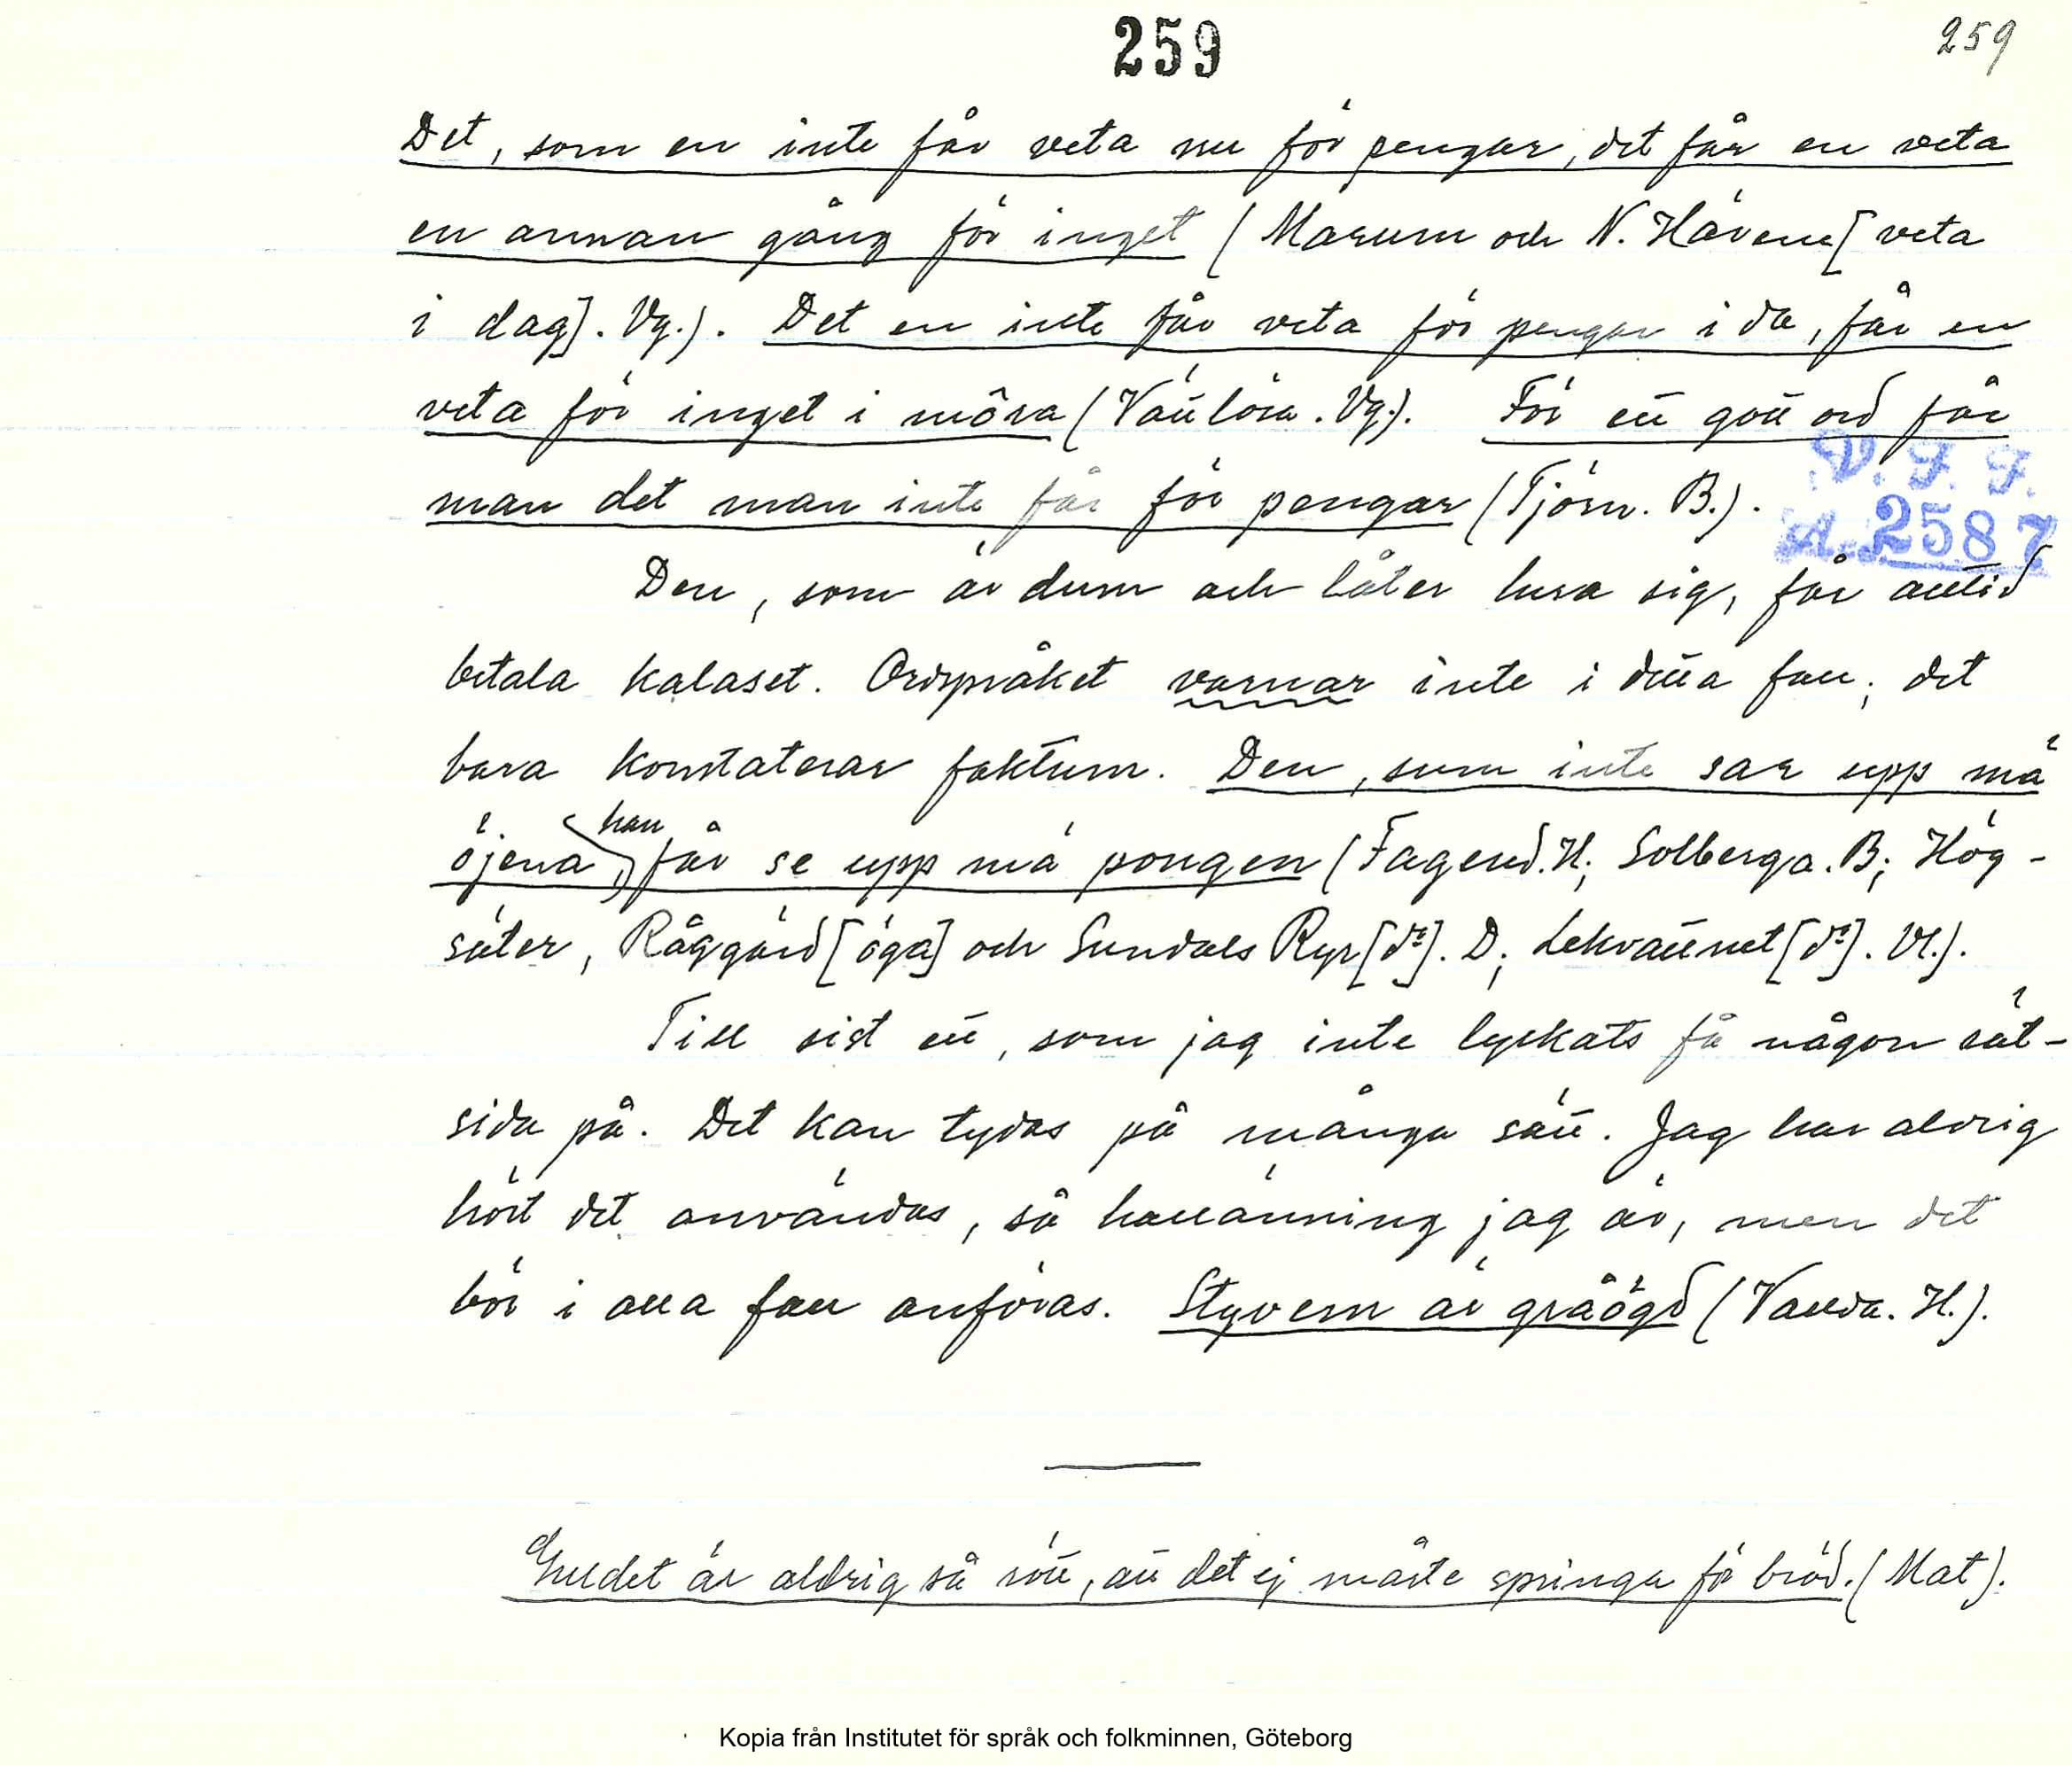 259
259
Det, som en inte får veta nu för pengar, det får en veta
en annan gång för inget (Marum och N. Härene [veta
i dag]. Vg.). Det en inte får veta för pengar i da, får en
veta för inget i môra (Vättlösa. Vg.). För ett gott ord får
man det man inte får för pengar (Tjörn. B.).
V. F. F.
A. 2587
Den, som är dum och låter lura sig, får alltid
betala kalaset. Ordspråket varnar inte i detta fall; det
bara konstaterar faktum. Den, sum inte sar upp mä
öjena, han får se upp mä pongen (Fagered. H; Solberga. B; Hög-
säter, Råggärd [öga] och Sundals Ryr [d:o]. D; Lekvattnet [d:o]. Vl.).
Till sist ett, som jag inte lyckats få någon rät-
sida på. Det kan tydas på många sätt. Jag har aldrig
hört det användas, så hallänning jag är, men det
bör i alla fall anföras. Styvem är gråögd (Vallda. H.).
Gulldet är aldrig så rött, att det ej måste springa fö bröd. (Mat).
Kopia från Institutet för språk och folkminnen, Göteborg